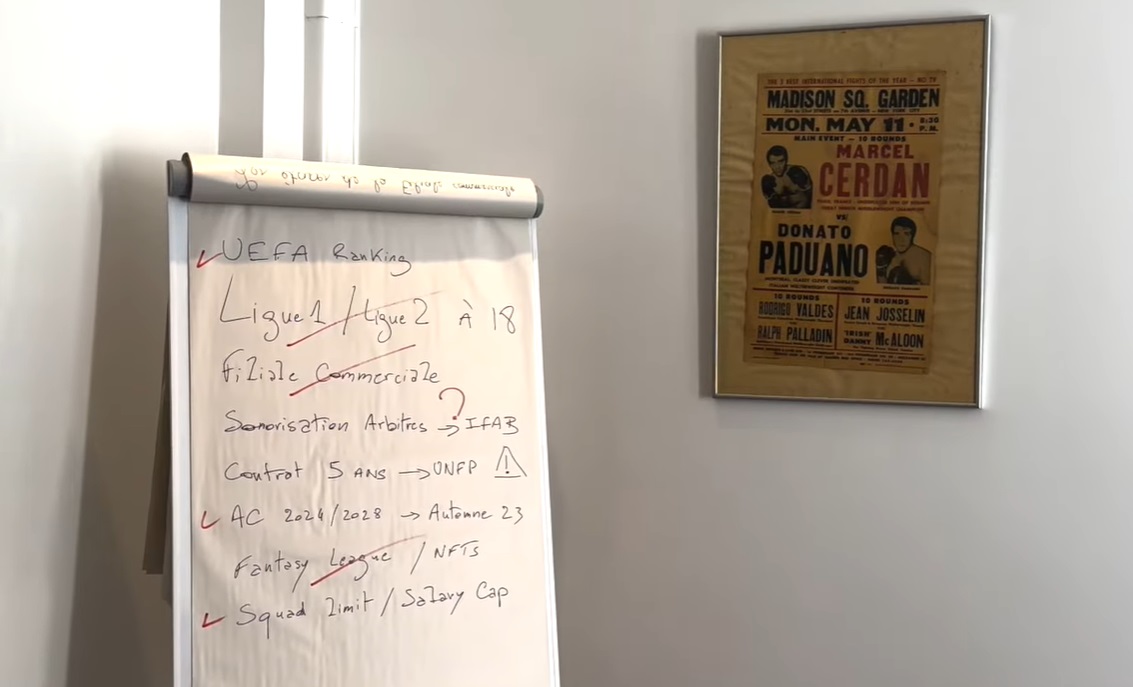 ✓ UEFA Ranking
Ligue 1 / Ligue 2 À 18
Filiale Commerciale
?
Sonorisation Arbitres → IFAB
Contrat 5 ANS → UNFP
✓ AC 2024/2028 → Automne 23
Fantasy League / NFTs
✓ Squad limit / Salary Cap
MADISON SQ. GARDEN
MON. MAY 11 • 8:30 P.M.
MAIN EVENT — 10 ROUNDS
MARCEL
CERDAN
VS
DONATO
PADUANO
10 ROUNDS
RODRIGO VALDES
RALPH PALLADIN
10 ROUNDS
JEAN JOSSELIN
"IRISH" DANNY McALOON